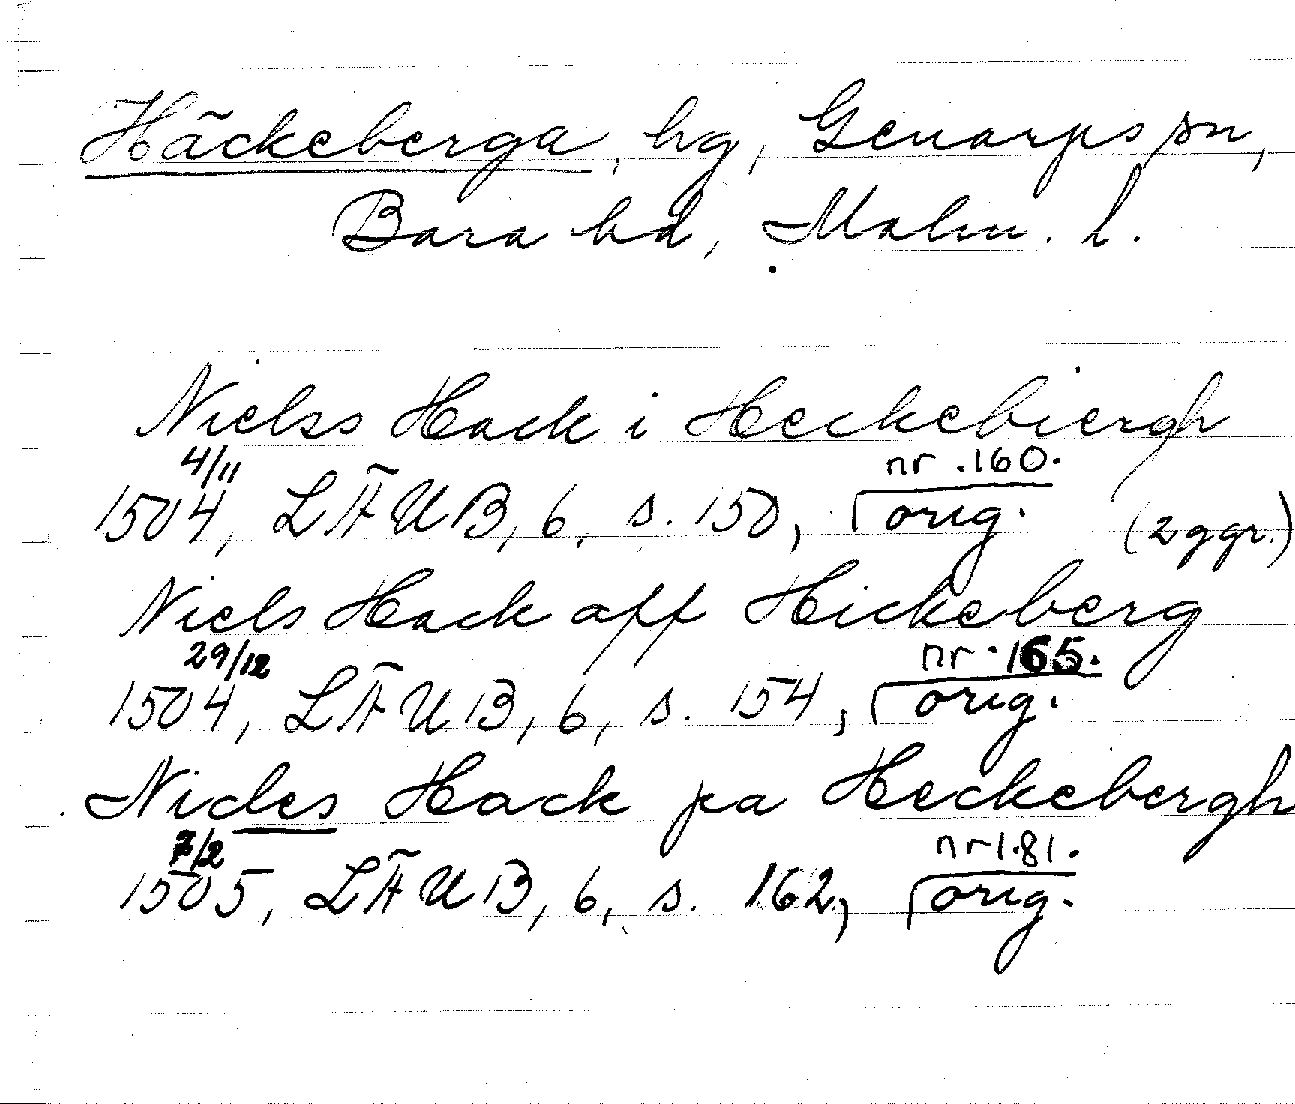 Häckeberga, hg, Genarps sn,
Bara hd, Malm. l.
Nielss Hack i Heckebiergh
4/11 nr. 160.
1504, LÄUB, 6, s. 150, orig. (2 ggr.)
Niels Hack aff Hickeberg
29/12 nr. 165.
1504, LÄUB, 6, s. 154, orig.
Nieles Hack pa Heckebergh
7/2 nr 181.
1505, LÄUB, 6, s. 162, orig.